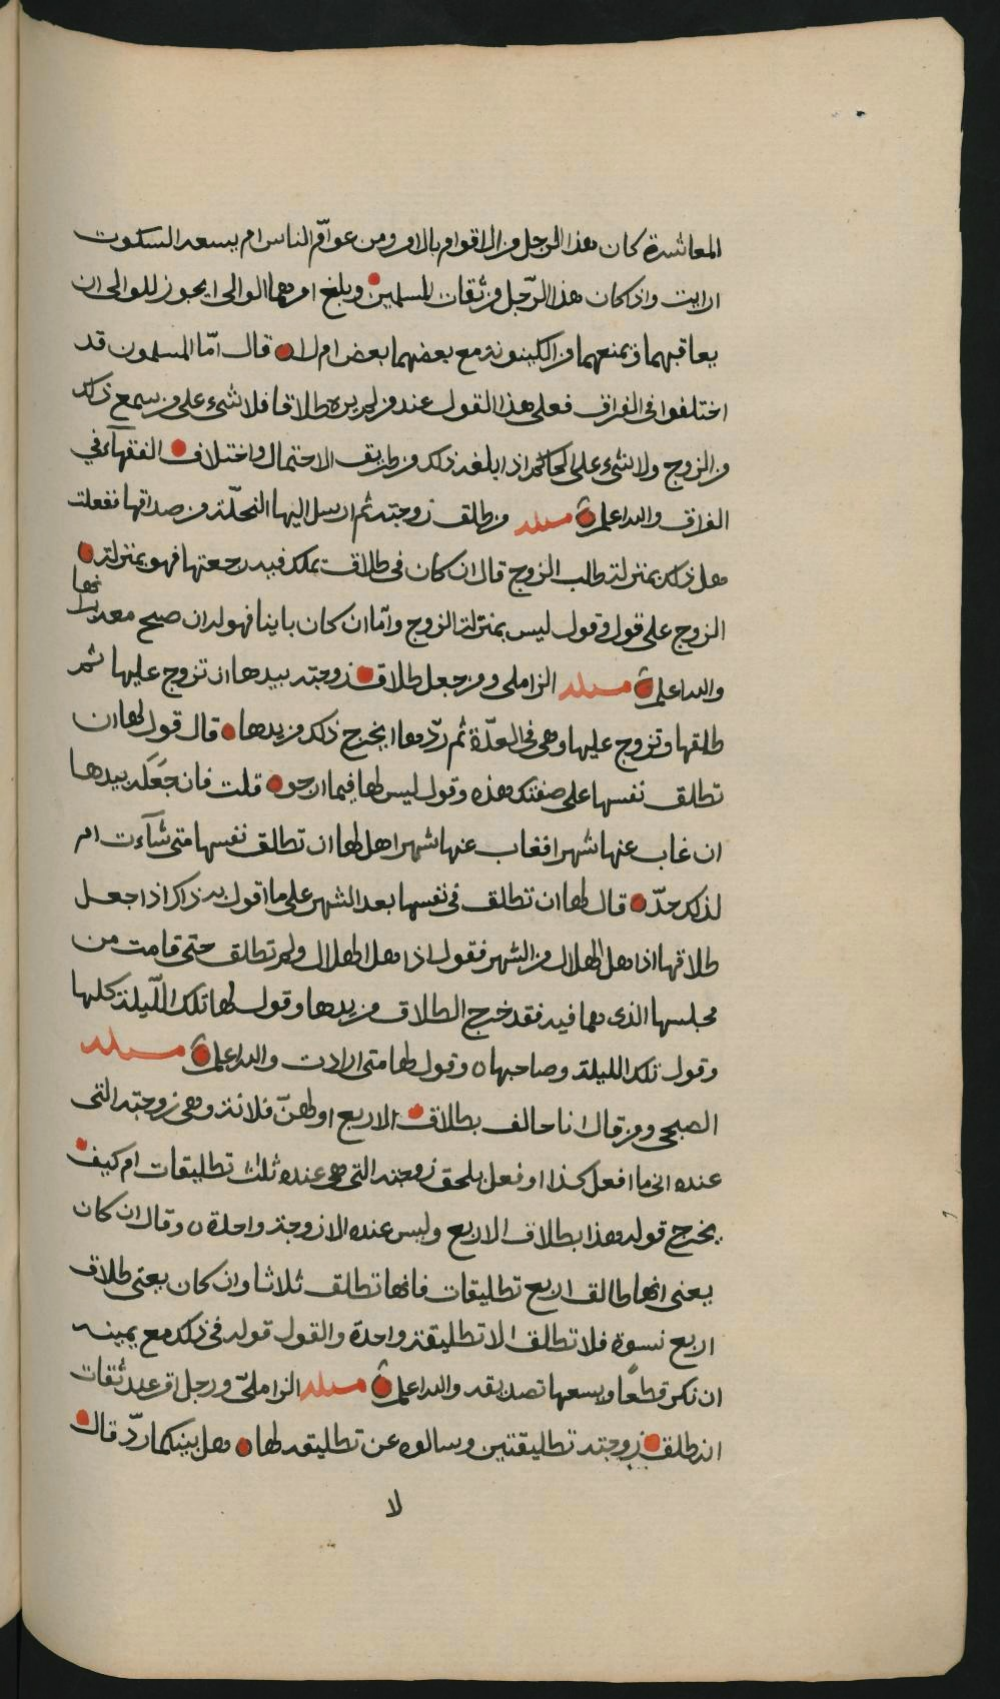 المعاشرة كان هذا الرجل من الاقوام بالامر ومن عوامّ الناس ام يسعه السكوت
ارايت واذا كان هذا الرّجل من ثقات المسلمين وبلغ امرهما الوالى ايجوز للوالى ان
يعاقبهما ويمنعهما من الكينونة مع بعضهما بعض ام لا قال امّا المسلمون قد
اختلفوا فى الفراق فعلى هذا القول عند من لم يره طلاقا فلا شىء على من سمع ذلك
من الزوج ولا شىء على الحاكم اذا بلغه ذلك من طريق الاحتمال واختلاف الفقهآء في
الفراق والله اعلم مسئلة ومن طلق زوجته ثم ارسل اليها النحلّة من صداقها ففعلت
هل ذلك بمنزلة طلب الزوج قال ان كان فى طلاق يملك فيه رجعتها فهو بمنزلة
الزوج على قول وقول ليس بمنزلة الزوج وامّا ان كان باينا فهو له ان صح معه انها
والله اعلم مسئلة الزاملى ومن جعل طلاق زوجته بيدها ان تزوج عليها ثم
طلقها وتزوج عليها وهى فى العدّة ثم ردّها ايخرج ذلك من يدها قال قول لها ان
تطلق نفسها على صفتك هذه وقول ليس لها فيما ارجو قلت فان جَعَله بيدها
ان غاب عنها شهرا فغاب عنها شهرا هل لها ان تطلق نفسها متى شآءت ام
لذلك حدّ قال لها ان تطلق فى نفسها بعد الشهر على ما اقول به ذاكر اذا جعل
طلاقها اذا هل الهلال من الشهر فقول اذا هل الهلال ولم تطلق حتى قامت من
مجلسها الذى هما فيه فقد خرج الطلاق من يدها وقول لها تلك اللّيلة كلها
وقول تلك الليلة وصاحبها ٥ وقول لها متى ارادت والله اعلم مسئلة
الصبحى ومن قال انا حالف بطلاق الاربع اولهنّ فلانة وهى زوجته التى
عنده انى ما افعل كذا او فعل يلحق زوجته التى هى عنده ثلث تطليقات ام كيف
يخرج قوله هذا بطلاق الاربع وليس عنده الا زوجة واحدة ٥ وقال ان كان
يعنى انها طالق اربع تطليقات فانها تطلق ثلاثا وان كان يعنى طلاق
اربع نسوة فلا تطلق الا تطليقة واحدة والقول قوله فى ذلك مع يمينه
ان نكر قطعًا ويسعها تصديقه والله اعلم مسئلة الزاملىّ ورجل اقر عند ثقات
انه طلق زوجته تطليقتين وسالوه عن تطليقه لها وهل بينكما ردّ قال
لا